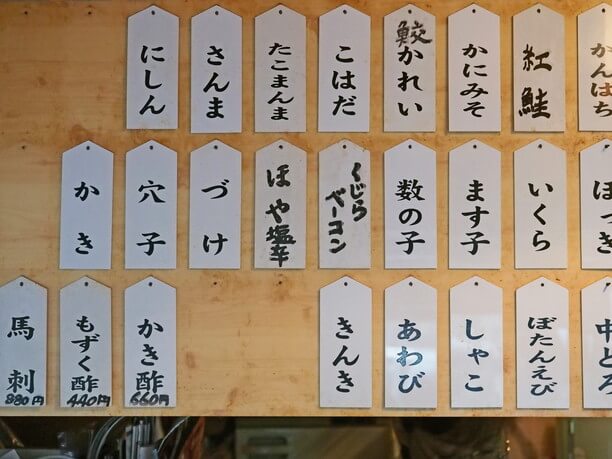 かんはち
紅鮭
かにみそ
鮫かれい
こはだ
たこまんま
さんま
にしん
ほっき
いくら
ます子
数の子
くじらベーコン
ほや塩辛
づけ
穴子
かき
中とろ
ぼたんえび
しゃこ
あわび
きんき
かき酢
660円
もずく酢
440円
馬刺
880円